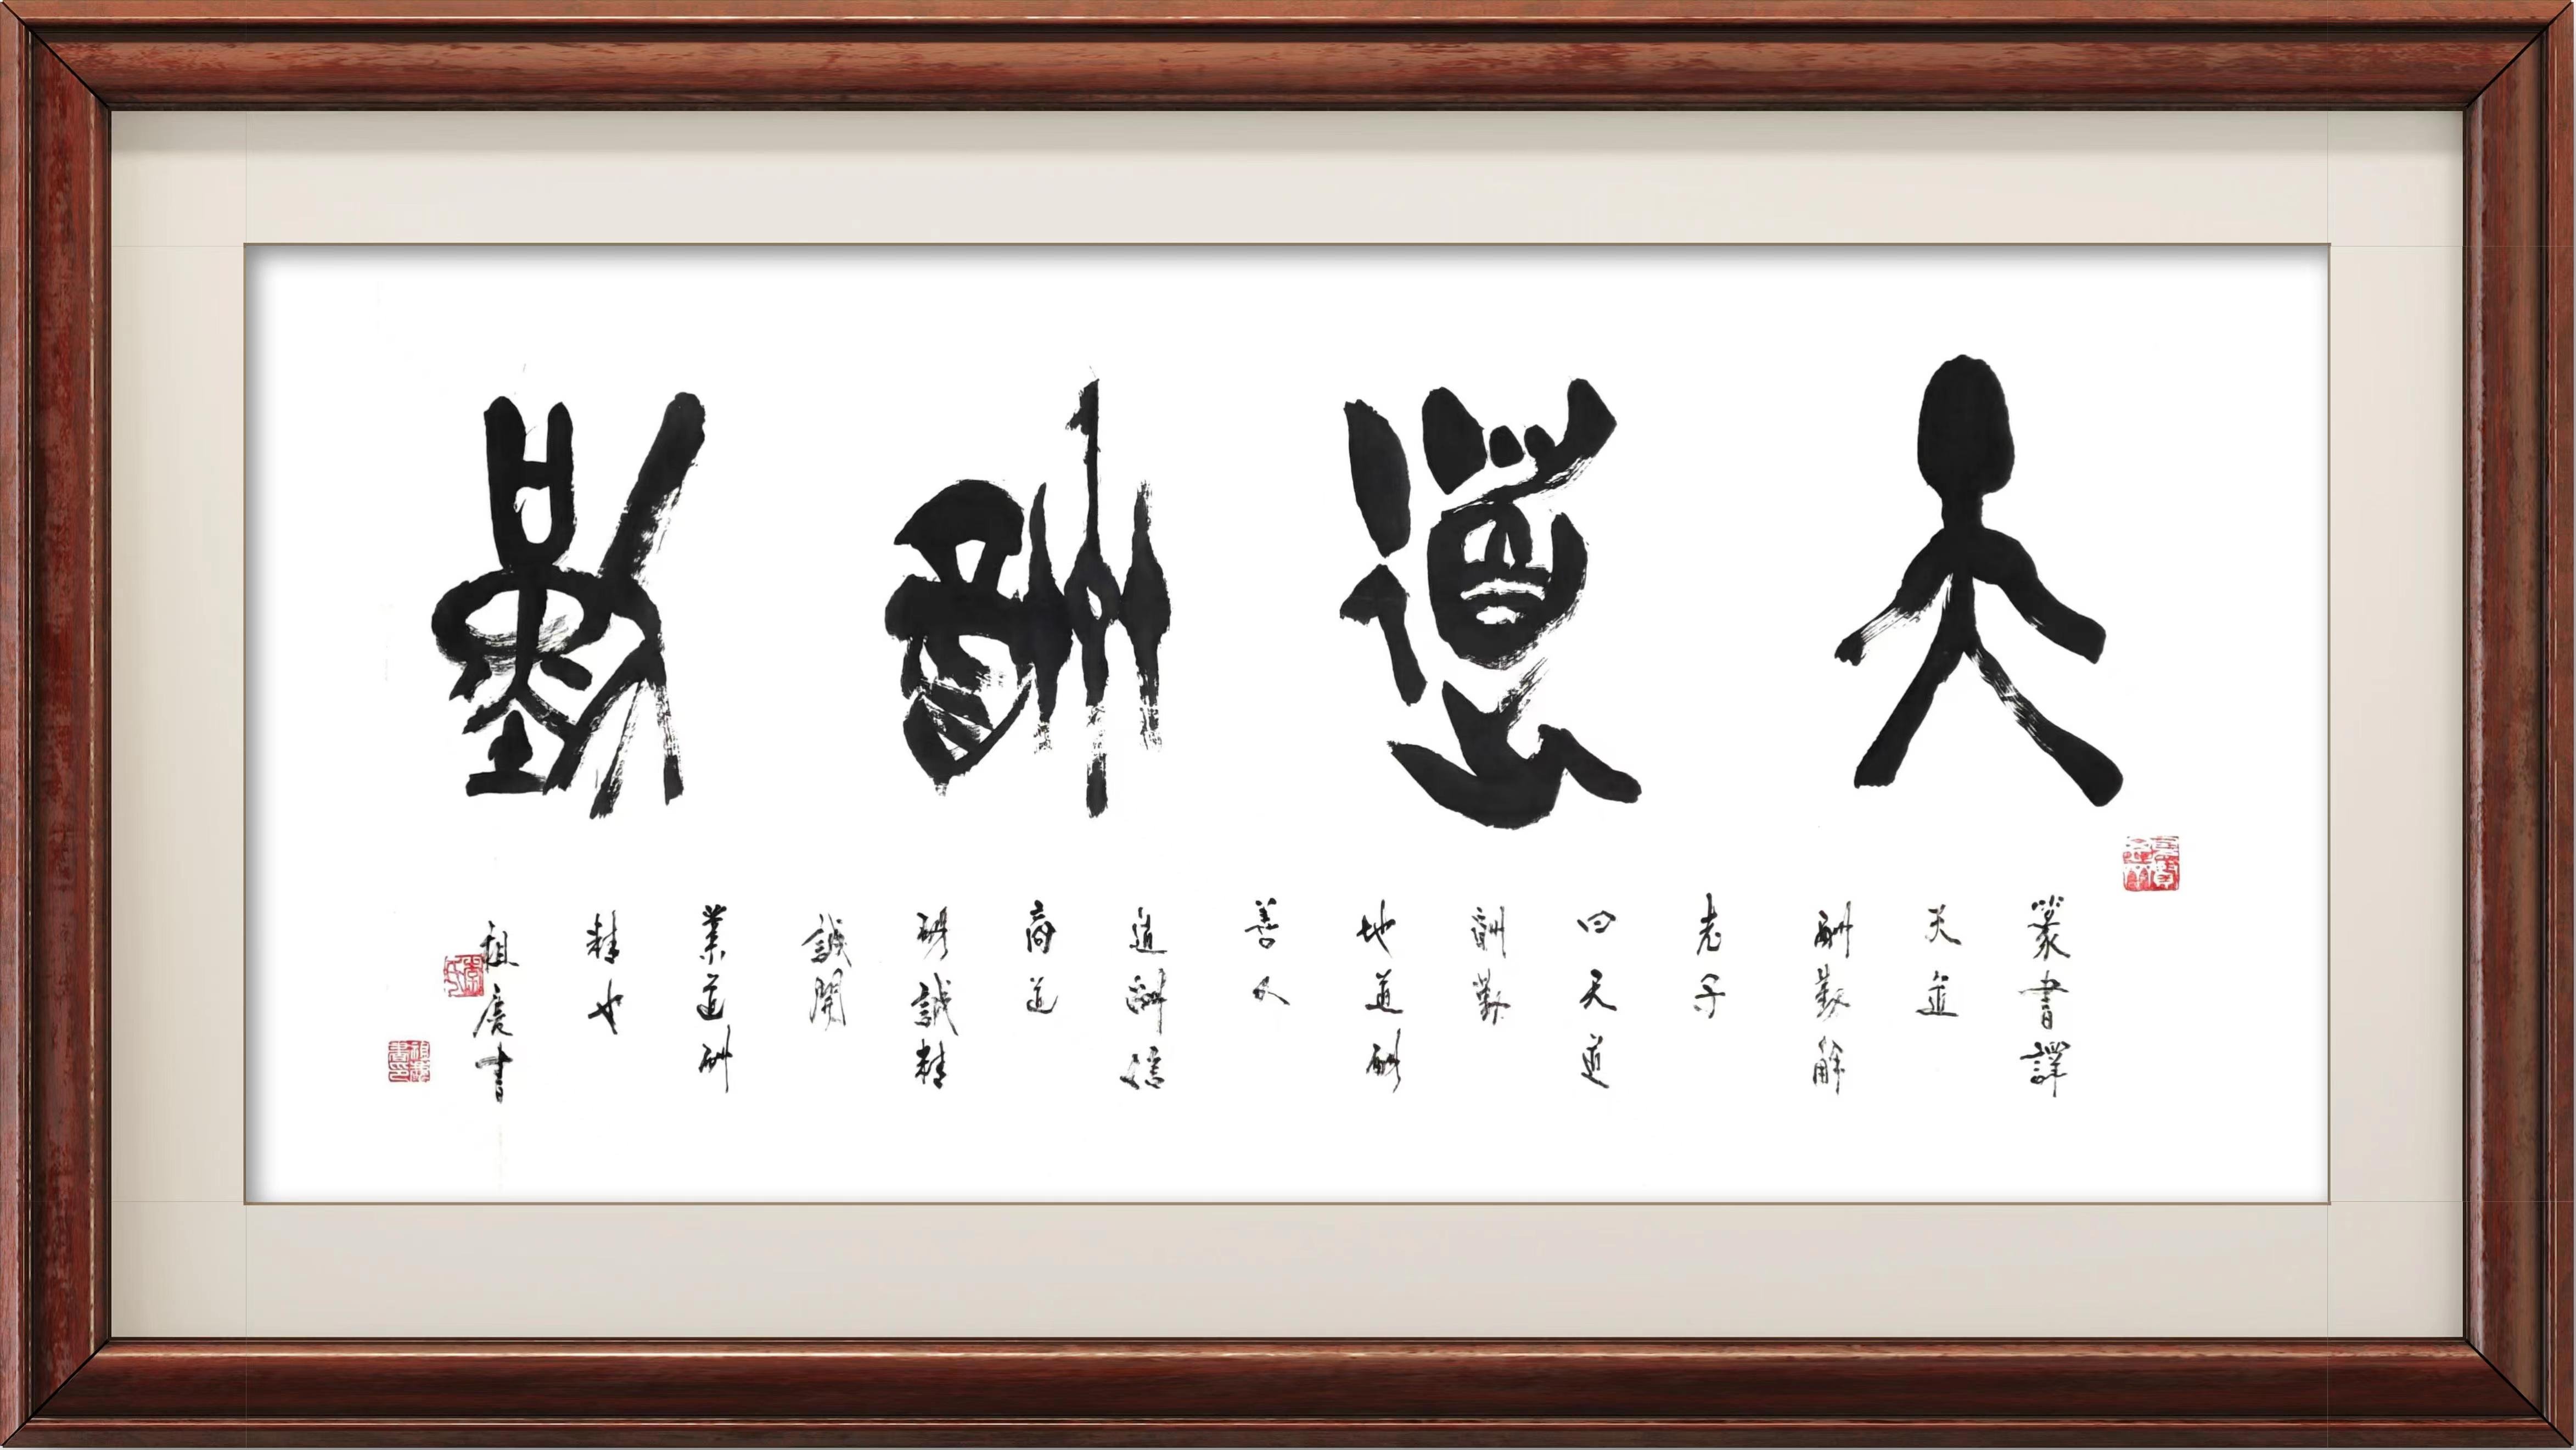 天道酬勤
篆書譯
天道
酬勤解
老子
曰天道
酬勤
地道酬
善人
道酬
商道
酬誠精
誠開
業道酬
精也
祖慶書